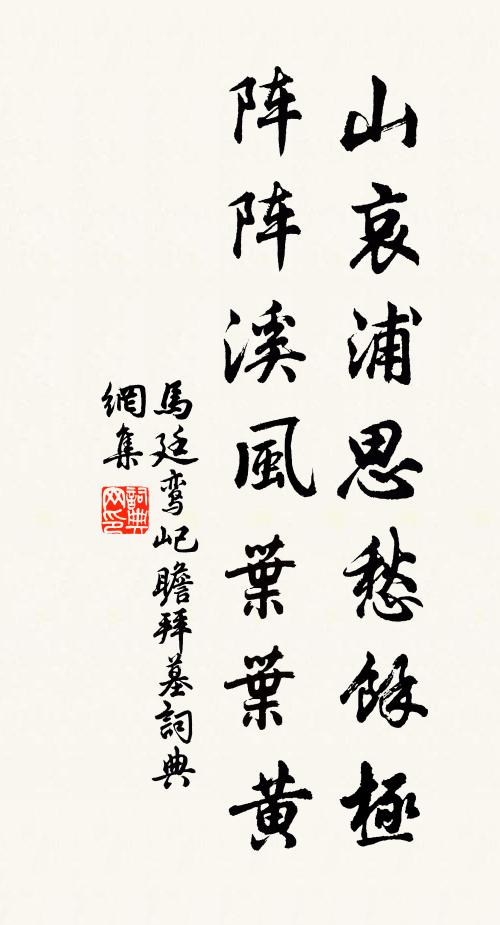 山哀浦思愁餘極
阵阵溪風葉葉黄
馬廷鸾屺瞻拜墓詞典
網集
詞典
网印